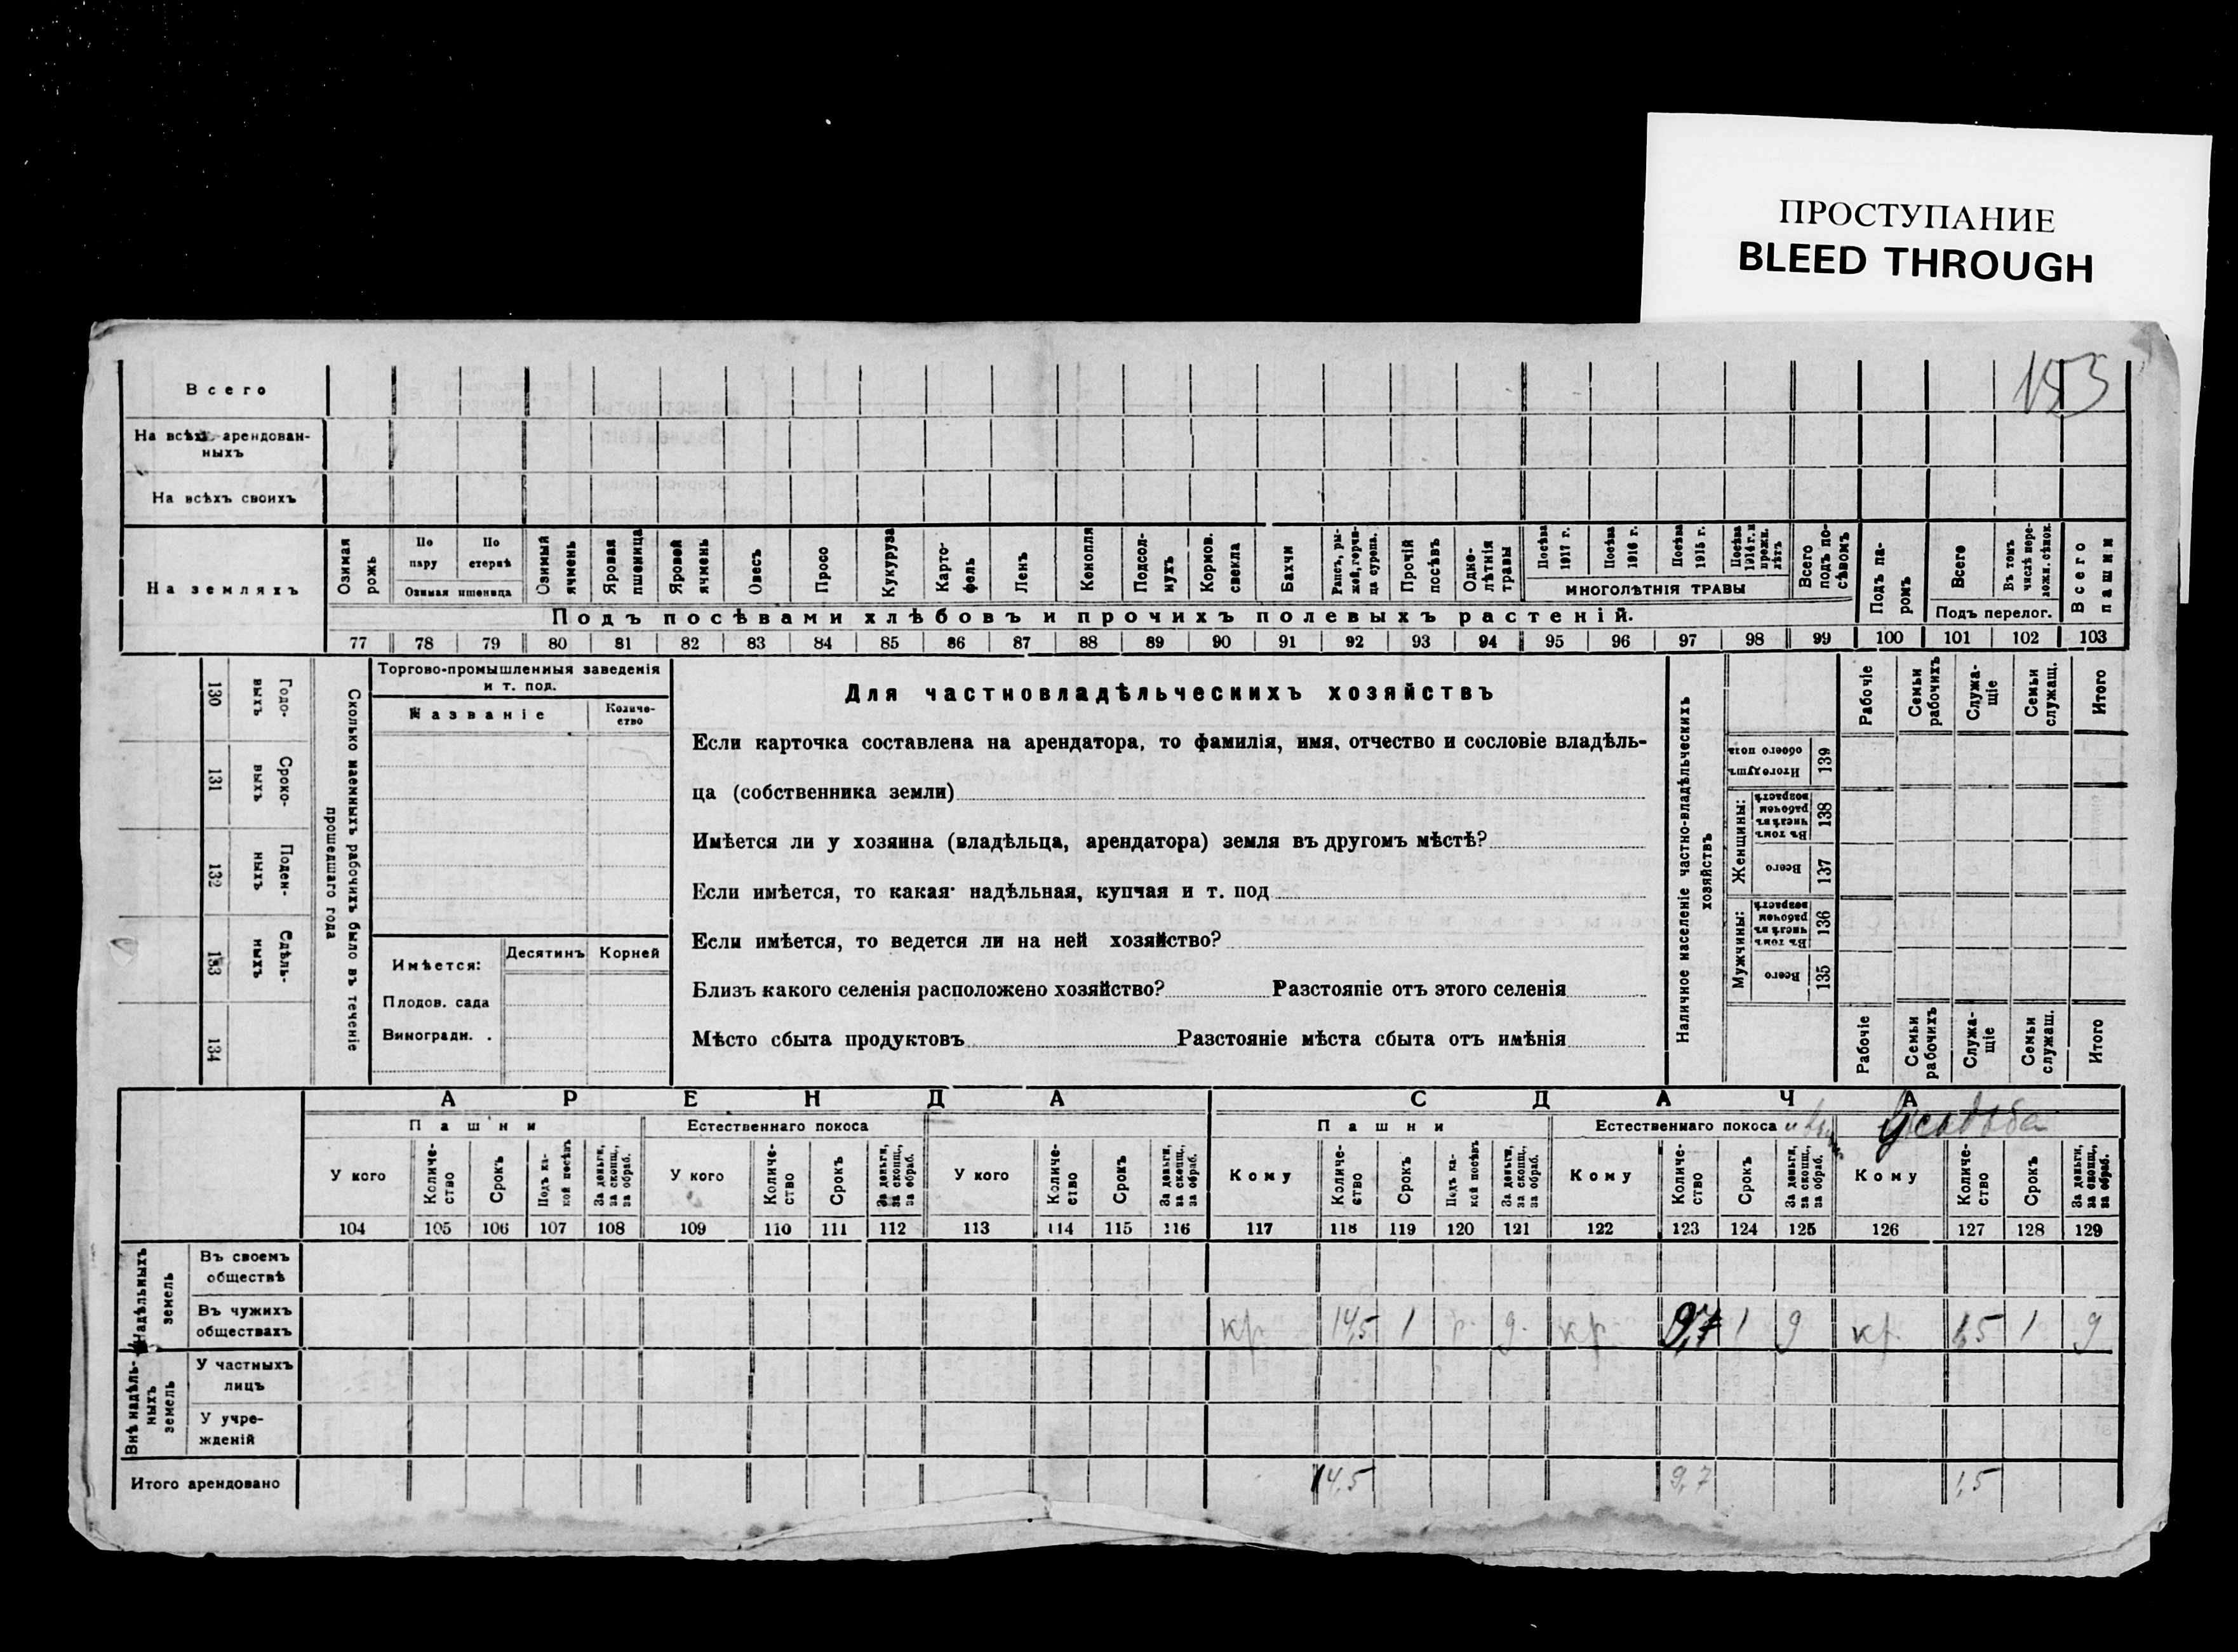 ПРОСТУПАНИЕ
BLEED THROUGH
153
Всего
На всѣхъ арендован-
ныхъ
На всѣхъ своихъ
На земляхъ
Озимая рожь
По пару
По стернѣ
Озимая пшеница
Озимый ячмень
Яровая пшеница
Яровой ячмень
Овесъ
Просо
Кукуруза
Карто-
фель
Ленъ
Конопля
Подсол-
нухъ
Кормов.
свекла
Бахчи
Рапсъ, ры-
жей, горчи-
ца сурепа.
Прочій
посѣвъ
Одно-
лѣтнія
травы
Посѣва
1917 г.
Посѣва
1916 г.
Посѣва
1915 г.
Посѣва
1914 г. и
прежн.
лѣтъ
МНОГОЛѢТНІЯ ТРАВЫ
Всего
подъ по-
сѣвомъ
Подъ па-
ромъ
Всего
Въ томъ
числѣ пере-
ложн. сѣнок.
Подъ перелог.
Всего
пашни
Подъ посѣвами хлѣбовъ и прочихъ полевыхъ растеній.
77 78 79 80 81 82 83 84 85 86 87 88 89 90 91 92 93 94 95 96 97 98 99 100 101 102 103
Годо-
выхъ
130
Сроко-
выхъ
131
Поден-
ныхъ
132
Сдѣль-
ныхъ
133
134
Сколько наемныхъ рабочихъ было въ теченіе
прошедшаго года
Торгово-промышленныя заведенія
и т. под.
Названіе
Количе-
ство
Имѣется:
Десятинъ
Корней
Плодов. сада
Виноградн. .
Для частновладѣльческихъ хозяйствъ
Если карточка составлена на арендатора, то фамилія, имя, отчество и сословіе владѣль-
ца (собственника земли)
Имѣется ли у хозяина (владѣльца, арендатора) земля въ другомъ мѣстѣ?
Если имѣется, то какая· надѣльная, купчая и т. под
Если имѣется, то ведется ли на ней хозяйство?
Близъ какого селенія расположено хозяйство? Разстояніе отъ этого селенія
Мѣсто сбыта продуктовъ Разстояніе мѣста сбыта отъ имѣнія
Наличное населеніе частно-владѣльческихъ
хозяйствъ
Рабочіе
Семьи
рабочихъ
Служа-
щіе
Семьи
служащ.
Итого
Итого душъ
обоего пола
139
Женщины:
Въ томъ
числѣ въ
рабочемъ
возрастѣ
138
Всего
137
Мужчины:
Въ томъ
числѣ въ
рабочемъ
возрастѣ
136
Всего
135
Рабочіе
Семьи
рабочихъ
Служа-
щіе
Семьи
служащ.
Итого
АРЕНДА
СДАЧА
Пашни
Естественнаго покоса
Пашни
Естественнаго покоса
Усадьба
У кого
Количе-
ство
Срокъ
Подъ ка-
кой посѣвъ
За деньги,
за скопщ.,
за обраб.
У кого
Количе-
ство
Срокъ
За деньги,
за скопщ.,
за обраб.
У кого
Количе-
ство
Срокъ
За деньги,
за скопщ.,
за обраб.
Кому
Количе-
ство
Срокъ
Подъ ка-
кой посѣвъ
За деньги,
за скопщ.,
за обраб.
Кому
Количе-
ство
Срокъ
За деньги,
за скопщ.,
за обраб.
Кому
Количе-
ство
Срокъ
За деньги,
за скопщ.,
за обраб.
104 105 106 107 108 109 110 111 112 113 114 115 116 117 118 119 120 121 122 123 124 125 126 127 128 129
Надѣльныхъ
земель
Въ своемъ
обществѣ
Въ чужихъ
обществахъ
кр 14,5 1 р. д. кр. 9,7 1 д кр. 1,5 1 д
Внѣ надѣль-
ныхъ
земель
У частныхъ
лицъ
У учре-
жденій
Итого арендовано
14,5 9,7 1,5